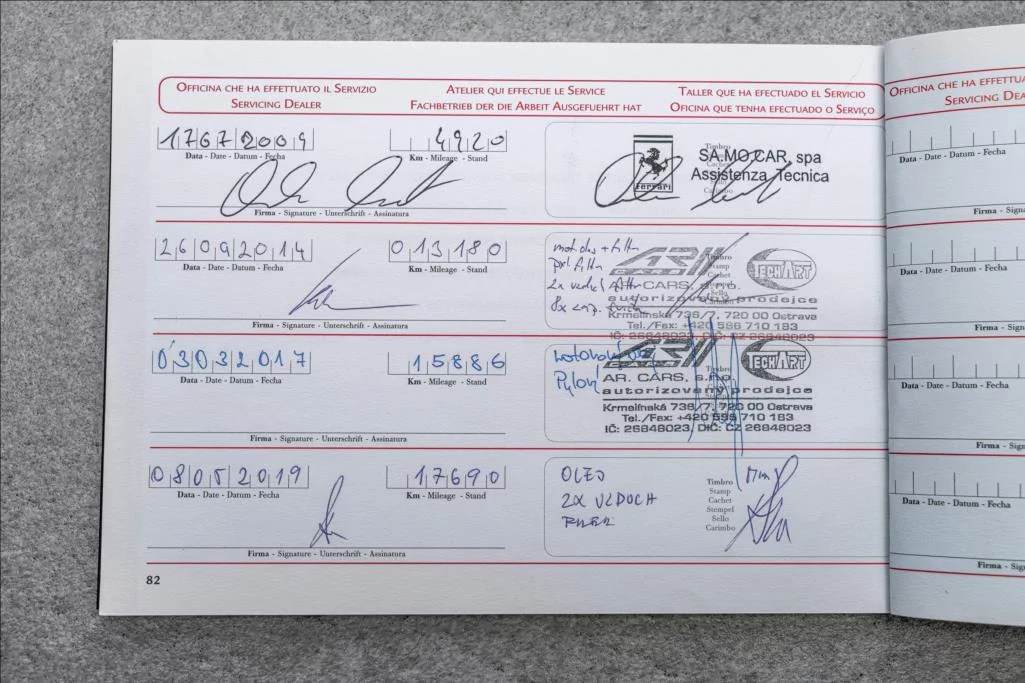 OFFICINA CHE HA EFFETTUATO IL SERVIZIO
SERVICING DEALER
ATELIER QUI EFFECTUE LE SERVICE
FACHBETRIEB DER DIE ARBEIT AUSGEFUEHRT HAT
TALLER QUE HA EFECTUADO EL SERVICIO
OFICINA QUE TENHA EFECTUADO O SERVIÇO
1 7 6 7 2 0 0 9
Data - Date - Datum - Fecha
4 9 2 0
Km - Mileage - Stand
Firma - Signature - Unterschrift - Assinatura
Ferrari
SA.MO.CAR. spa
Assistenza Tecnica
2 6 0 9 2 0 1 4
Data - Date - Datum - Fecha
0 1 3 1 8 0
Km - Mileage - Stand
Firma - Signature - Unterschrift - Assinatura
CARS
TECHART
AR. CARS, s.r.o.
autorizovaný prodejce
Krmelínská 736/7, 720 00 Ostrava
Tel./Fax: +420 596 710 183
IČ: 26848023, DIČ: CZ 26848023
0 3 0 3 2 0 1 7
Data - Date - Datum - Fecha
1 5 8 8 6
Km - Mileage - Stand
Firma - Signature - Unterschrift - Assinatura
CARS
TECHART
AR. CARS, s.r.o.
autorizovaný prodejce
Krmelínská 736/7, 720 00 Ostrava
Tel./Fax: +420 596 710 183
IČ: 26848023, DIČ: CZ 26848023
0 8 0 5 2 0 1 9
Data - Date - Datum - Fecha
1 7 6 9 0
Km - Mileage - Stand
Firma - Signature - Unterschrift - Assinatura
OLEJ
2X VZDUCH
Timbro
Stamp
Cachet
Stempel
Sello
Carimbo
82
OFFICINA CHE HA EFFETTUA
SERVICING DEA
Data - Date - Datum - Fecha
Firma - Sig
Data - Date - Datum - Fecha
Firma - Sig
Data - Date - Datum - Fecha
Firma - Sig
Data - Date - Datum - Fecha
Firma - Sig